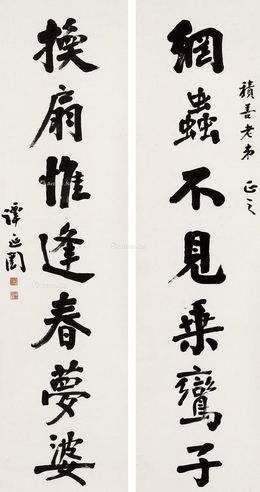 網蟲不見乘鸞子
積善老弟 正之
換扇惟逢春夢婆
譚延闓